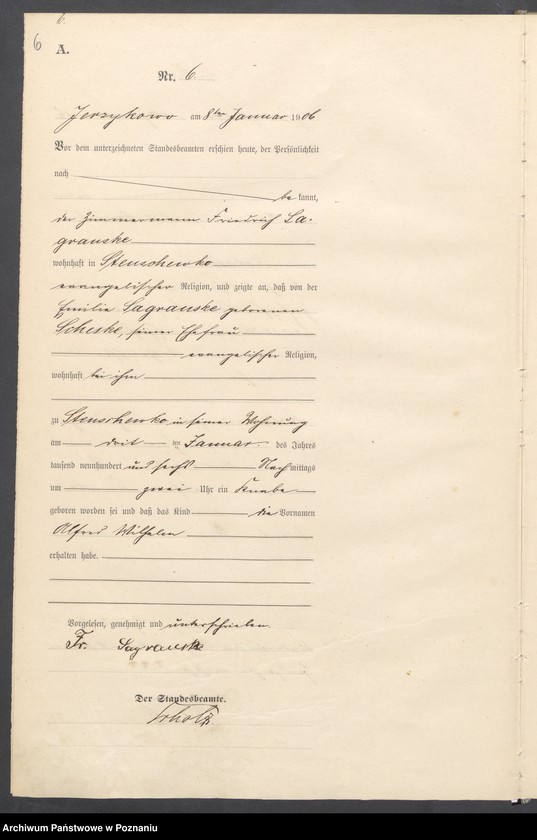 6.
6
A.
Nr. 6
Jerzykowo am 8ten Januar 1906
Vor dem unterzeichneten Standesbeamten erschien heute, der Persönlichkeit
nach
be kannt,
der Zimmermann Friedrich Sa-
grauske
wohnhaft in Stenschewko
evangelischer Religion, und zeigte an, daß von der
Emilie Sagrauske geborenen
Scheske, seiner Ehefrau
evangelischer Religion,
wohnhaft bei ihm
zu Stenschewko in seiner Wohnung
am drit ten Januar des Jahres
tausend neunhundert und sechs Nach mittags
um zwei Uhr ein Knabe
geboren worden sei und daß das Kind die Vornamen
Alfred Wilhelm
erhalten habe.
Vorgelesen, genehmigt und unterschrieben.
Fr. Sagrauske
Der Standesbeamte.
Archiwum Państwowe w Poznaniu